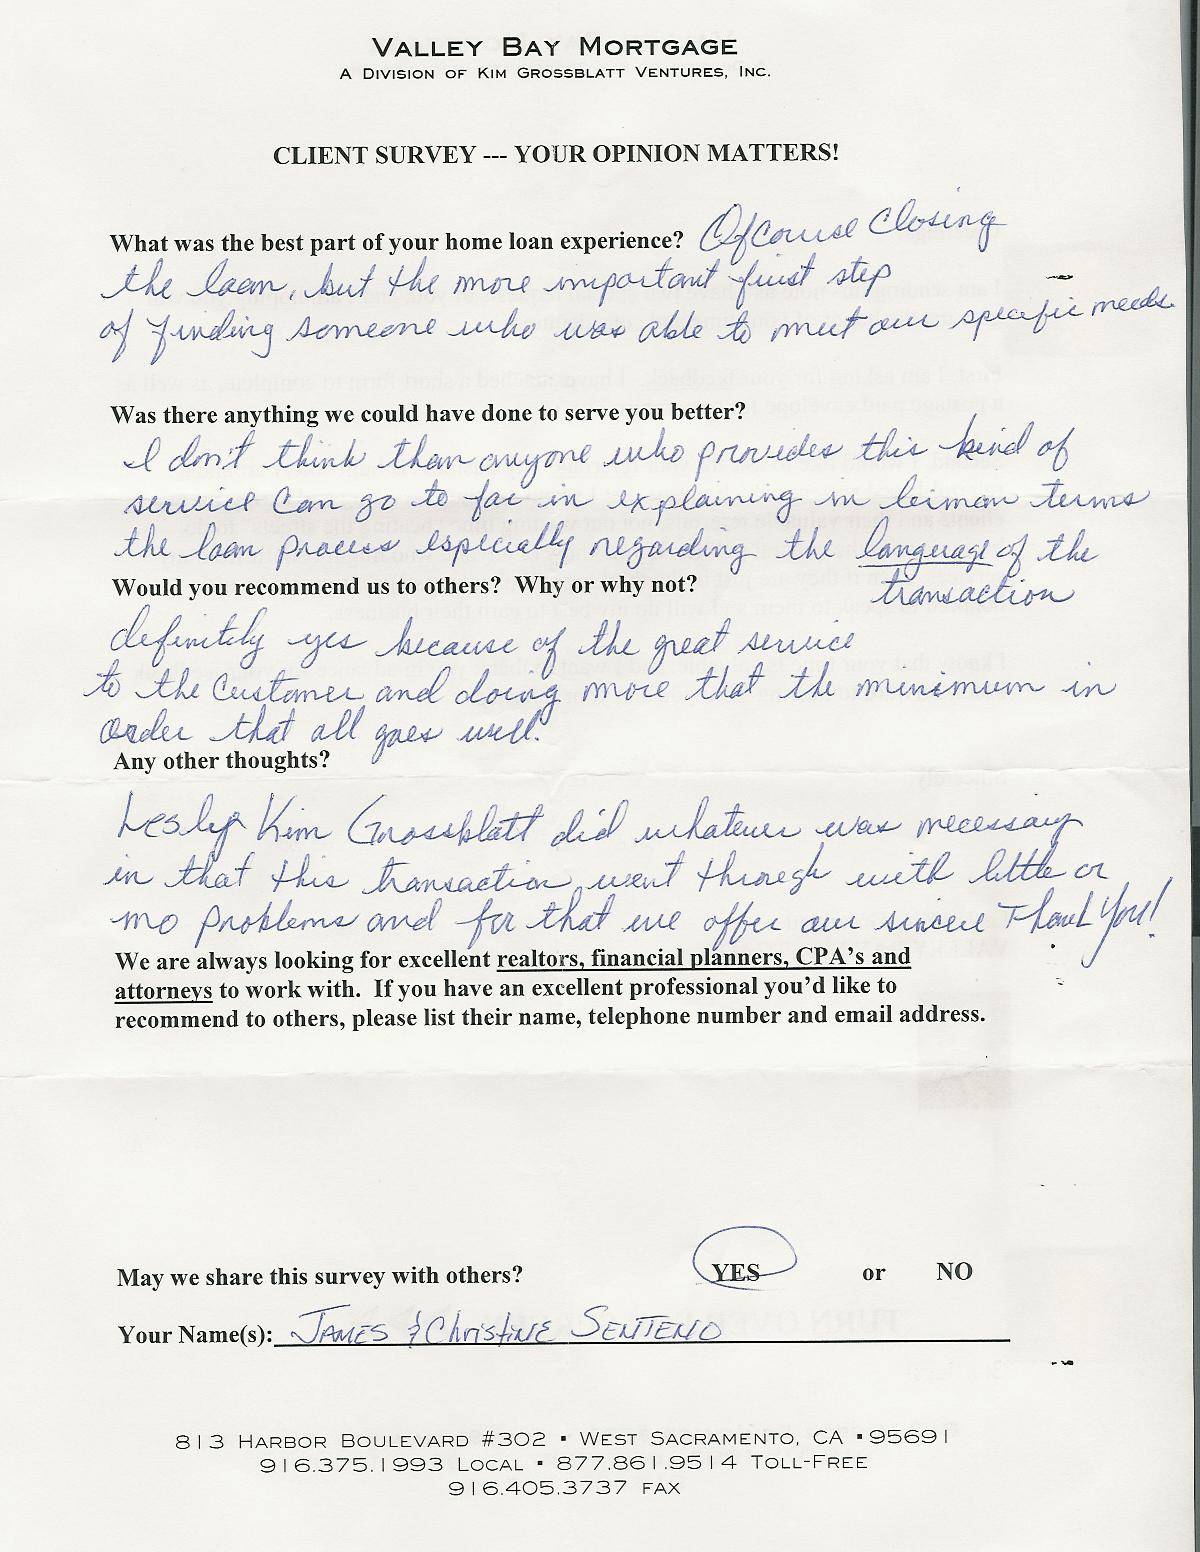 VALLEY BAY MORTGAGE
A DIVISION OF KIM GROSSBLATT VENTURES, INC.
CLIENT SURVEY --- YOUR OPINION MATTERS!
What was the best part of your home loan experience? Ofcourse Closing
the loan, but the more important first step
of finding someone who was able to meet our specific needs.
Was there anything we could have done to serve you better?
I don't think than anyone who provides this kind of
service can go to far in explaining in leiman terms
the loan process especially regarding the language of the
Would you recommend us to others? Why or why not? transaction
definitely yes because of the great service
to the customer and doing more that the minimum in
order that all goes well.
Any other thoughts?
Kim Grossblatt did whatever was necessary
in that this transaction went through with little or
no problems and for that we offer our sincere Thank You!
We are always looking for excellent realtors, financial planners, CPA's and
attorneys to work with. If you have an excellent professional you'd like to
recommend to others, please list their name, telephone number and email address.
May we share this survey with others? YES or NO
Your Name(s): JAMES & ChristiNE SENTENO
813 HARBOR BOULEVARD #302 ▪ WEST SACRAMENTO, CA ▪ 95691
916.375.1993 LOCAL ▪ 877.861.9514 TOLL-FREE
916.405.3737 FAX